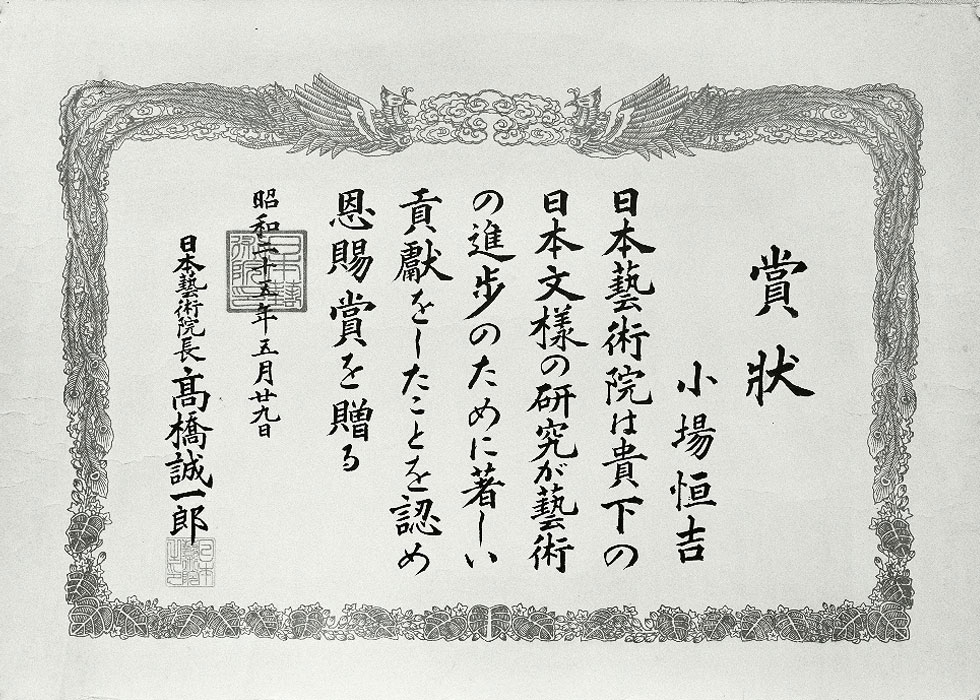 賞狀
小場恒吉
日本藝術院は貴下の
日本文様の研究が藝術
の進歩のために著しい
貢獻をしたことを認め
恩賜賞を贈る
昭和二十五年五月廿九日
日本藝術院長髙橋誠一郎